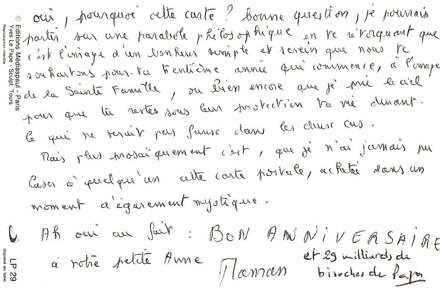 oui, pourquoi cette carte ? bonne question, je pourrais
partir sur une parabole philosophique en te rétorquant que
c'est l'image d'un bonheur simple et serein que nous te
souhaitons pour ta trentième année qui commence, à l'image
de la Sainte Famille, ou bien encore que je prie le ciel
pour que tu restes sous leur protection ta vie durant.
Ce qui ne serait pas faux dans les deux cas.
Mais plus prosaïquement c'est, que je n'ai jamais pu
caser à quelqu'un cette carte postale, achetée dans un
moment d'égarement mystique.
Ah oui au fait : BON ANNIVERSAIRE
à notre petite Anne
Maman
et 29 milliards de
bisoches de Papa
© Editions Mediaspaul - Paris
Yves Le Pape - Sculpt. Tours
LP 29